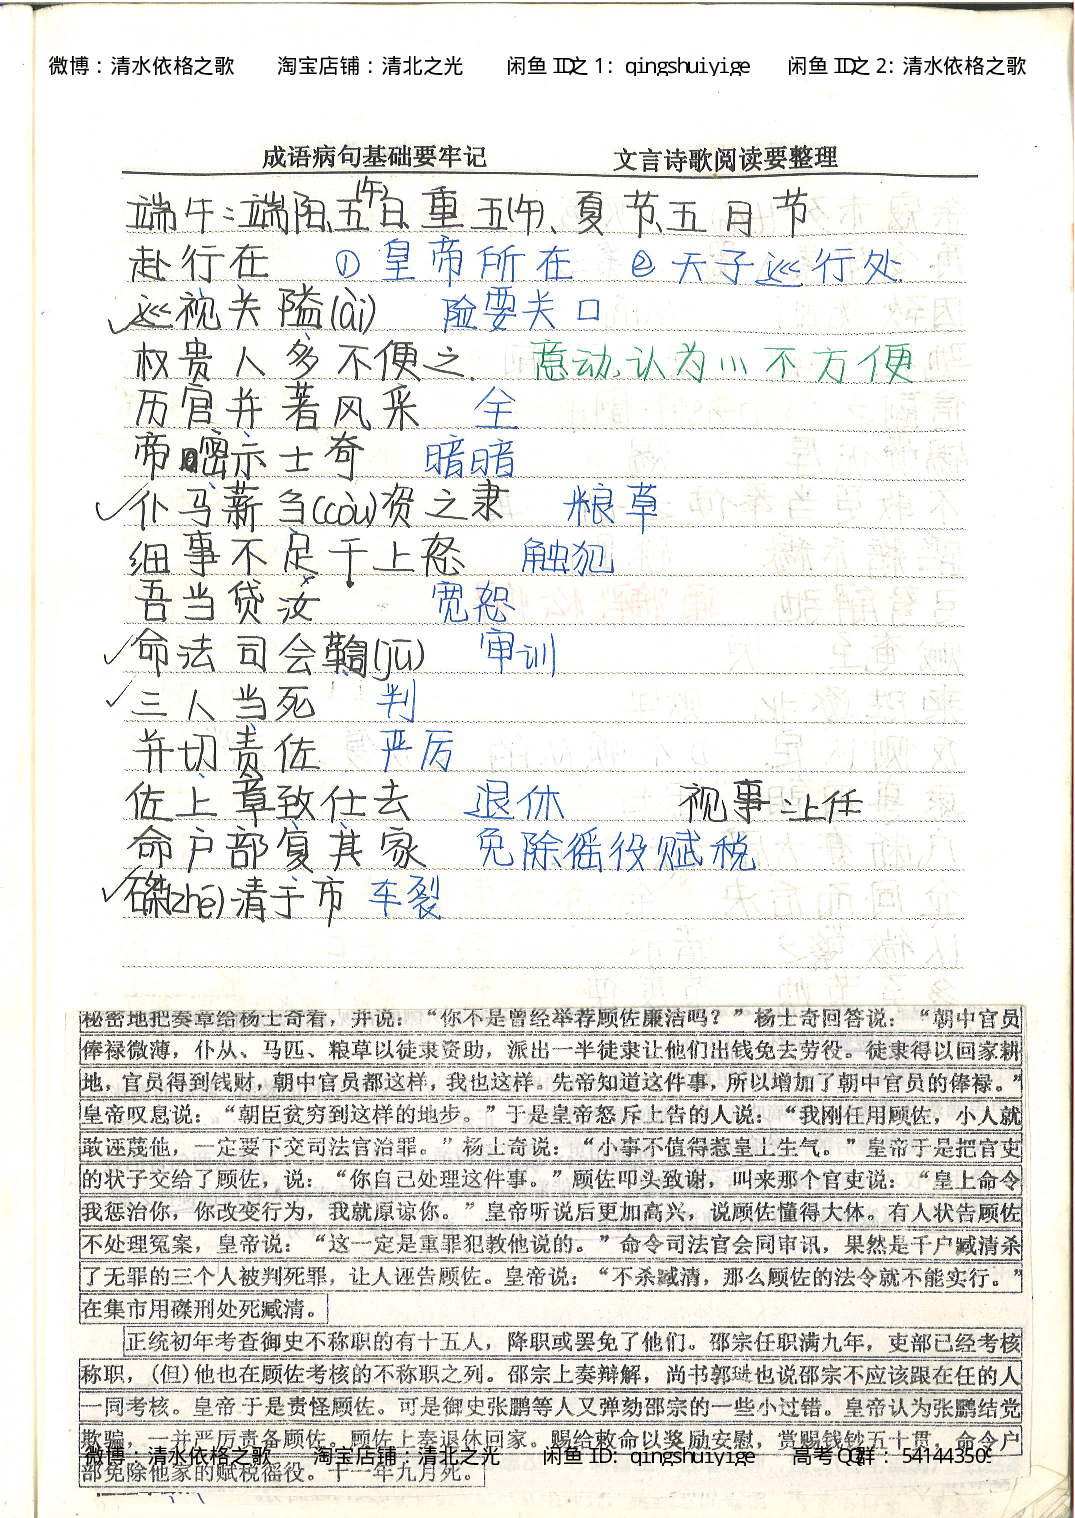 微博：清水依格之歌 淘宝店铺：清北之光 闲鱼 ID之 1：qingshuiyige 闲鱼 ID之 2：清水依格之歌
成语病句基础要牢记 文言诗歌阅读要整理
端午：端阳、五(午)日、重五(午)、夏节、五月节
赴行在 ①皇帝所在 ②天子巡行处
巡视关隘(ài) 险要关口
权贵人多不便之. 意动,认为……不方便
历官并著风采 全
帝密示士奇 暗暗
仆马薪刍(còu)资之隶 粮草
细事不足干上怒 触犯
吾当贷汝 宽恕
命法司会鞫(jū) 审训
三人当死 判
并切责佐 严厉
佐上章致仕去 退休 视事：上任
命户部复其家 免除徭役赋税
磔(zhé)清于市 车裂
秘密地把奏章给杨士奇看，并说：“你不是曾经举荐顾佐廉洁吗？”杨士奇回答说：“朝中官员
俸禄微薄，仆从、马匹、粮草以徒隶资助，派出一半徒隶让他们出钱免去劳役。徒隶得以回家耕
地，官员得到钱财，朝中官员都这样，我也这样。先帝知道这件事，所以增加了朝中官员的俸禄。”
皇帝叹息说：“朝臣贫穷到这样的地步。”于是皇帝怒斥上告的人说：“我刚任用顾佐，小人就
敢诬蔑他，一定要下交司法官治罪。”杨士奇说：“小事不值得惹皇上生气。”皇帝于是把官吏
的状子交给了顾佐，说：“你自己处理这件事。”顾佐叩头致谢，叫来那个官吏说：“皇上命令
我惩治你，你改变行为，我就原谅你。”皇帝听说后更加高兴，说顾佐懂得大体。有人状告顾佐
不处理冤案，皇帝说：“这一定是重罪犯教他说的。”命令司法官会同审讯，果然是千户臧清杀
了无罪的三个人被判死罪，让人诬告顾佐。皇帝说：“不杀臧清，那么顾佐的法令就不能实行。”
在集市用磔刑处死臧清。
正统初年考查御史不称职的有十五人，降职或罢免了他们。邵宗任职满九年，吏部已经考核
称职，(但)他也在顾佐考核的不称职之列。邵宗上奏辩解，尚书郭琎也说邵宗不应该跟在任的人
一同考核。皇帝于是责怪顾佐。可是御史张鹏等人又弹劾邵宗的一些小过错。皇帝认为张鹏结党
欺骗，一并严厉责备顾佐。顾佐上奏退休回家。赐给敕命以奖励安慰，赏赐钱钞五十贯，命令户
微博：清水依格之歌 淘宝店铺：清北之光 闲鱼 ID：qingshuiyige 高考 QQ群：541443509
部免除他家的赋税徭役。十一年九月死。